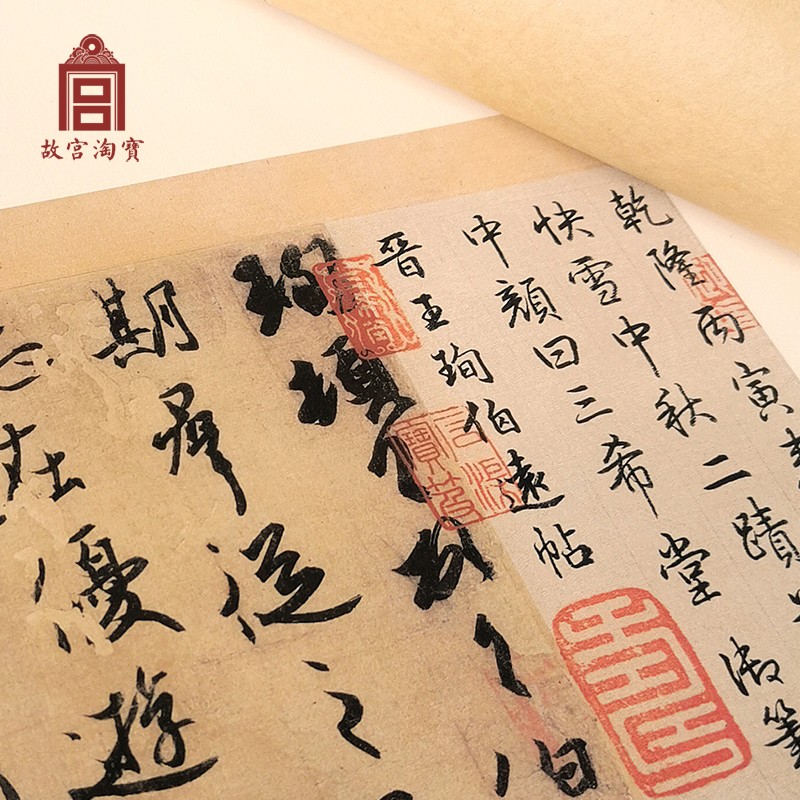 故宫淘寶
乾隆丙寅
快雪中秋二蹟
中顏曰三希堂御筆
晉王珣伯遠帖
珣頓首頓首伯
期羣從之
在優遊